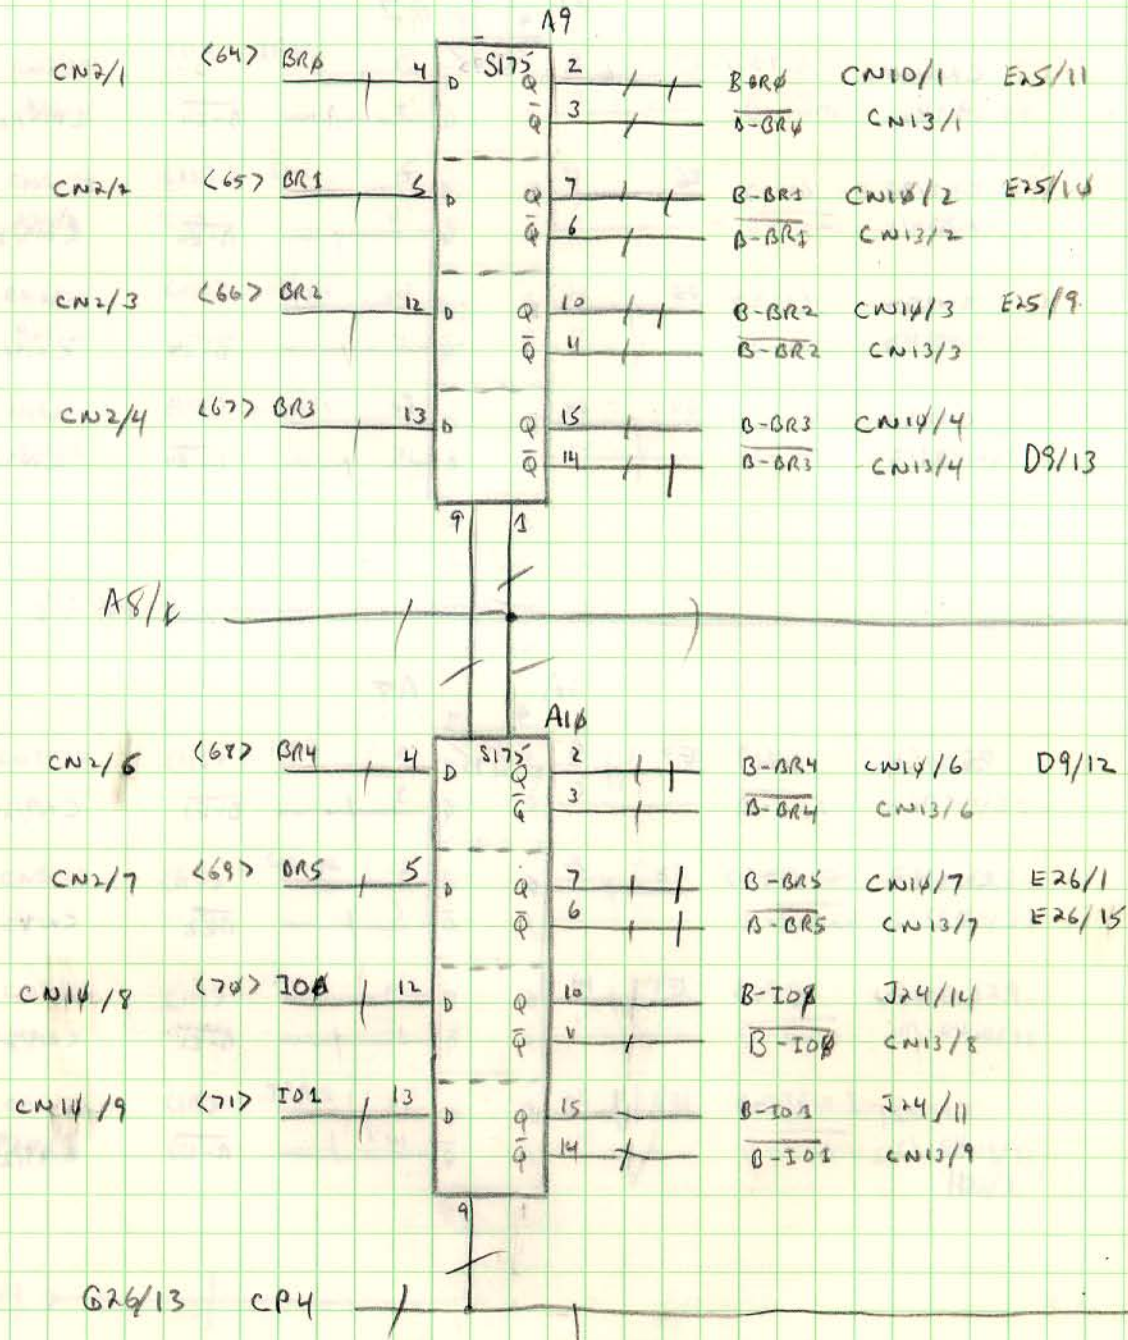 A9
CN2/1 <64> BRØ 4 D S175 Q 2 B-BRØ CN10/1 E25/11
Q̅ 3 B-BRØ CN13/1
CN2/2 <65> BR1 5 D Q 7 B-BR1 CN1Ø/2 E25/1Ø
Q̅ 6 B-BR1 CN13/2
CN2/3 <66> BR2 12 D Q 10 B-BR2 CN1Ø/3 E25/9
Q̅ 11 B-BR2 CN13/3
CN2/4 <67> BR3 13 D Q 15 B-BR3 CN1Ø/4
Q̅ 14 B-BR3 CN13/4 D9/13
9 1
A8/
A1Ø
CN2/6 <68> BR4 4 D S175 Q 2 B-BR4 CN1Ø/6 D9/12
Q̅ 3 B-BR4 CN13/6
CN2/7 <69> BR5 5 D Q 7 B-BR5 CN1Ø/7 E26/1
Q̅ 6 B-BR5 CN13/7 E26/15
CN1Ø/8 <7Ø> IOØ 12 D Q 10 B-IOØ J24/14
Q̅ B-IOØ CN13/8
CN1Ø/9 <71> IO1 13 D Q 15 B-IO1 J24/11
Q̅ 14 B-IO1 CN13/9
9 1
G26/13 CP4